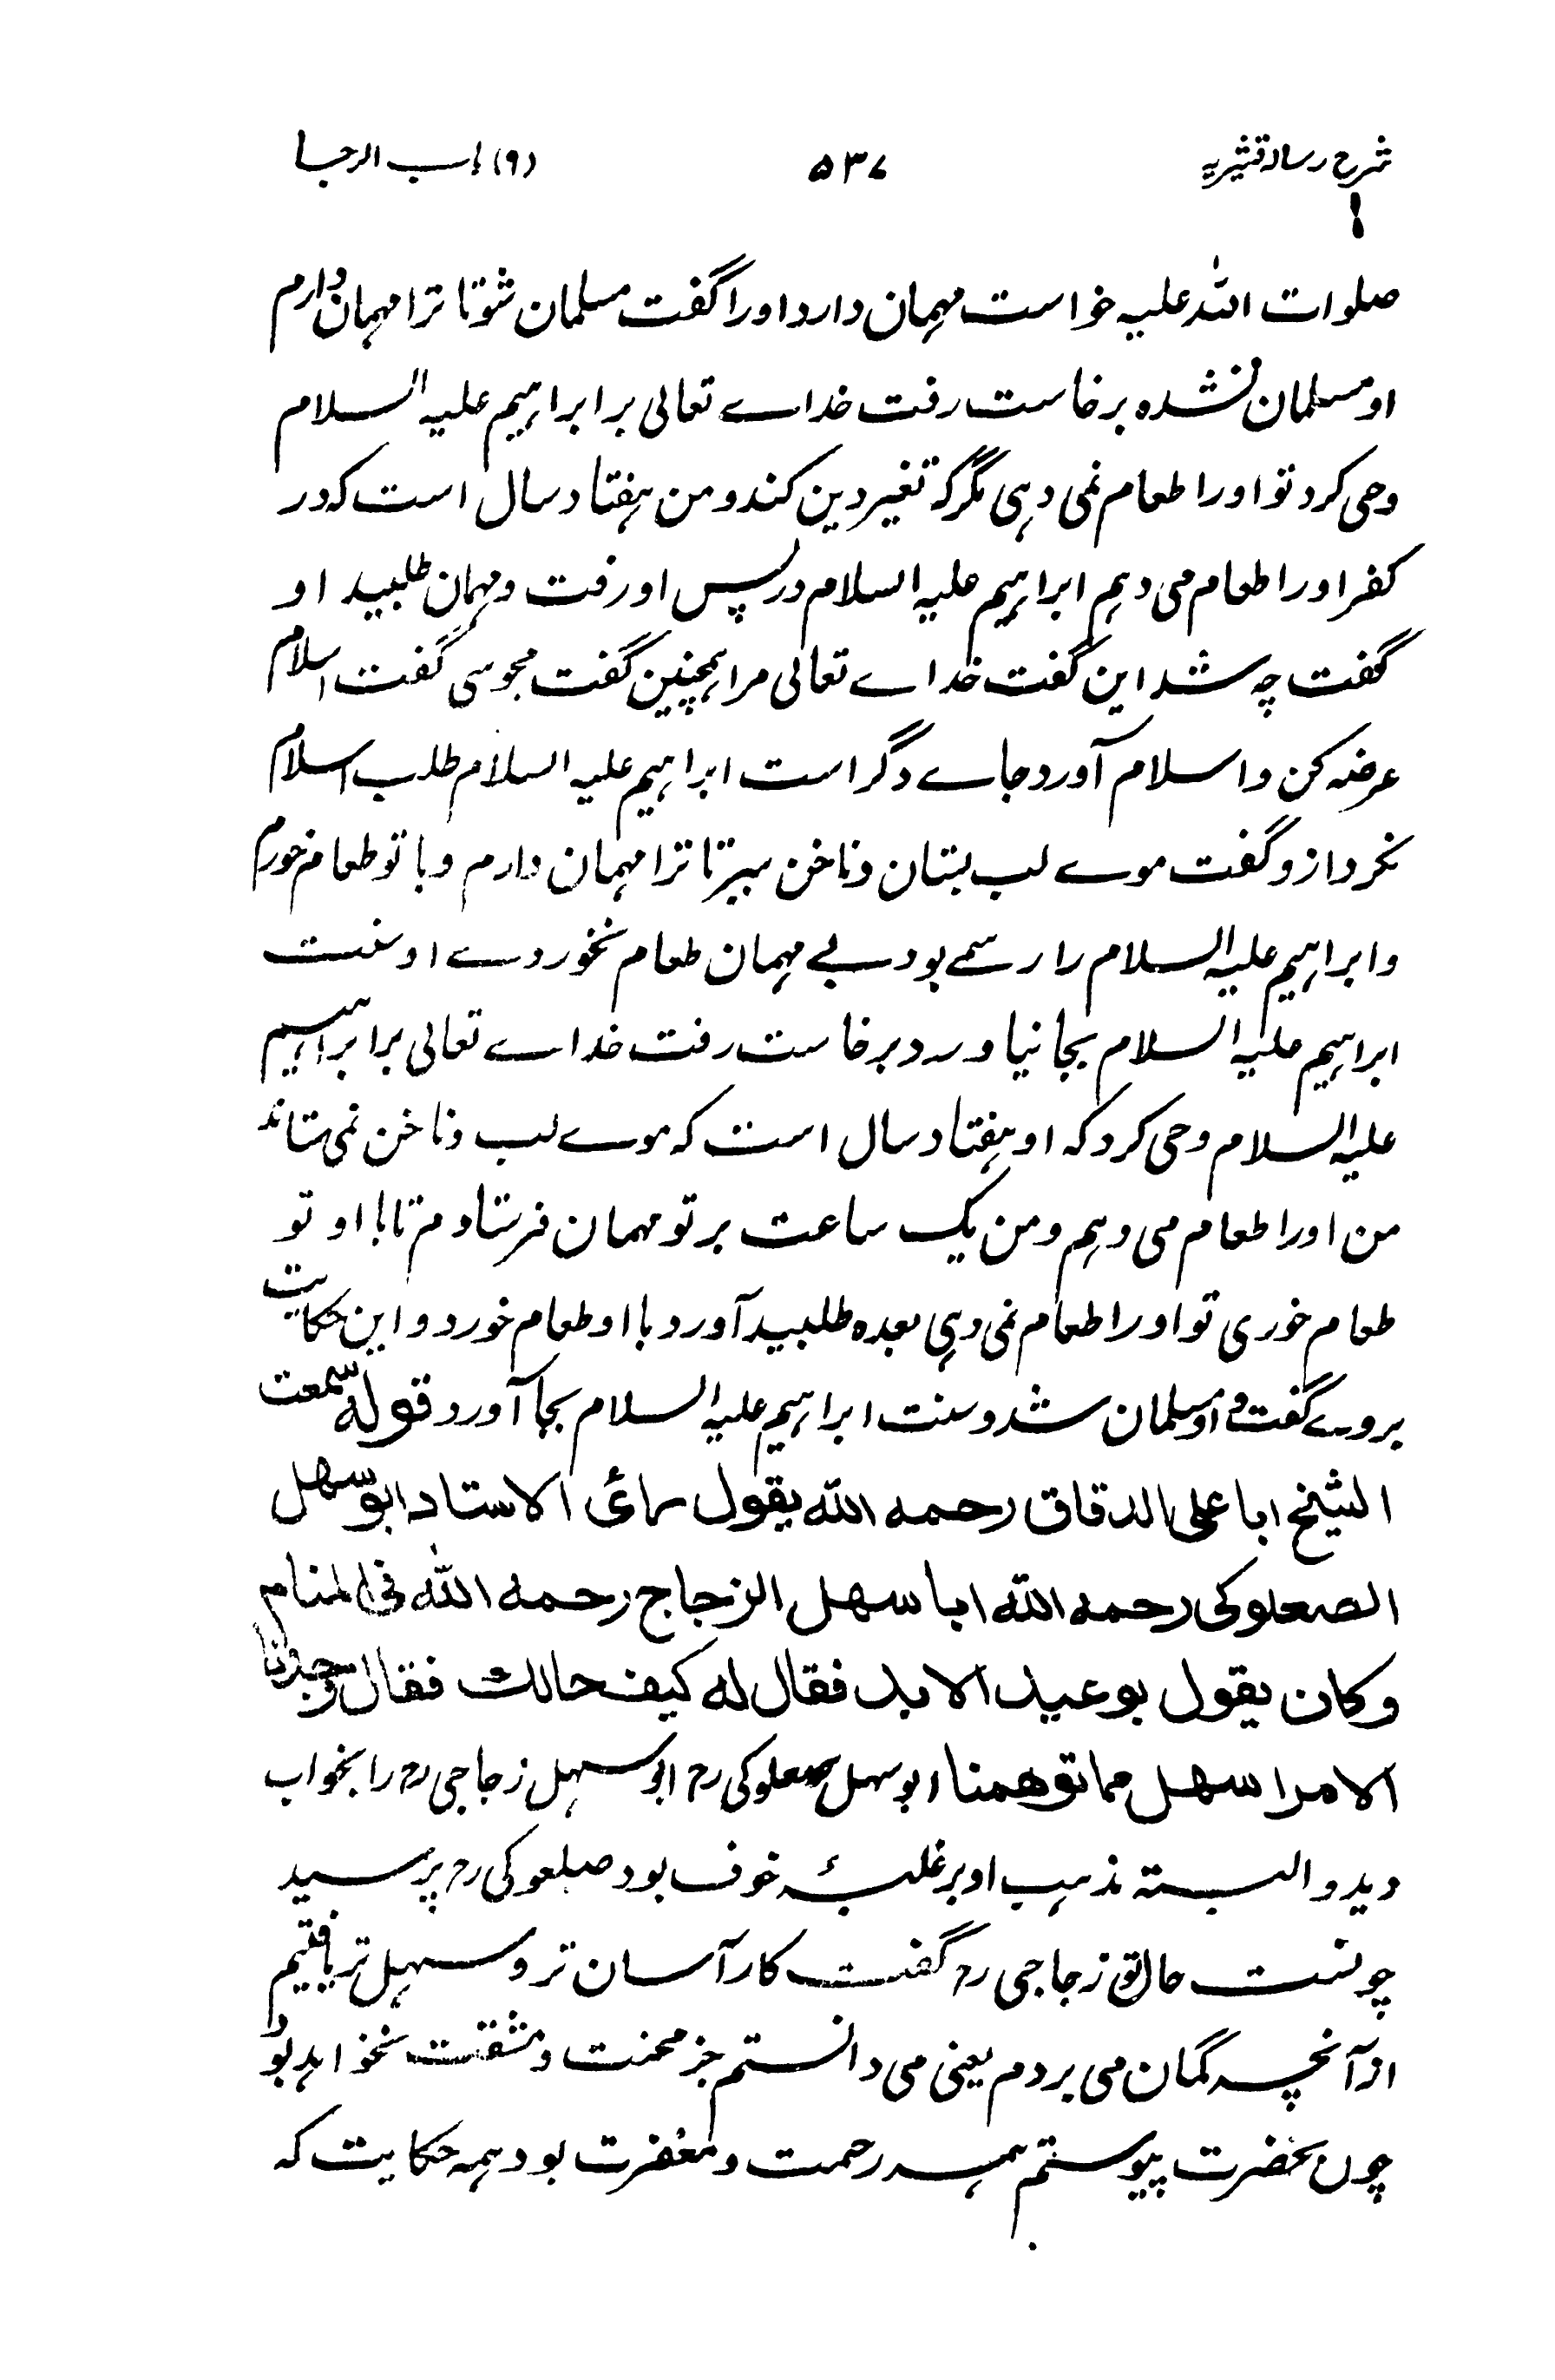 شرح رسالہ قشیریہ ۵۳۷ (۹) باب الرجا
صلوات اللہ علیہ خواست مہمان دارد اورا گفت مسلمان شو تا ترا مہمان دارم
او مسلمان نشدہ برخاست رفت خداے تعالی بر ابراہیم علیہ السلام
وحی کرد تو اورا طعام نمی دہی مگر کہ تغیر دین کند و من ہفتاد سال است کہ در
کفر اورا طعام می دہم ابراہیم علیہ السلام در پس او رفت و مہمان طلبید او
گفت چہ شد این گفت خداے تعالی مرا ہمچنین گفت مجوسی گفت اسلام
عرضہ کن و اسلام آورد جاے دگر است ابراہیم علیہ السلام طلب اسلام
نکرد ازو گفت موے لب بستان و ناخن ببر تا ترا مہمان دارم و با تو طعام خورم
و ابراہیم علیہ السلام را رسمے بود بے مہمان طعام نخوردے او سنت
ابراہیم علیہ السلام بجا نیاورد برخاست رفت خداے تعالی بر ابراہیم
علیہ السلام وحی کرد کہ او ہفتاد سال است کہ موے لب و ناخن نمی ستاند
من اورا طعام می دہم و من یک ساعت بر تو مہمان فرستادم تا با او تو
طعام خوری تو اورا طعام نمی دہی بعدہ طلبید آورد با او طعام خورد و این حکایت
بروے گفت و او مسلمان شد و سنت ابراہیم علیہ السلام بجا آورد قولہ سمعت
الشیخ ابا علی الدقاق رحمہ اللہ یقول رائ الاستاد ابو سهل
الصعلوکی رحمہ اللہ ابا سهل الزجاج رحمہ اللہ فی المنام
وکان یقول بوعید الابد فقال لہ کیف حالک فقال وجدنا
الامر اسهل مما توهمنا ابو سہل صعلوکی رح ابو سہل زجاجی رح را بخواب
دید و البستہ مذہب او بر غلبۂ خوف بود صلعوکی رح پرسید
چونست حال تو زجاجی رح گفت کار آسان تر و سہل تر یافتیم
از آنچہ گمان می بردم یعنی می دانستم جز محنت و مشقت نخواہد بود
چوں بحضرت پیوستم ہمہ رحمت و مغفرت بود ہمہ حکایت کہ